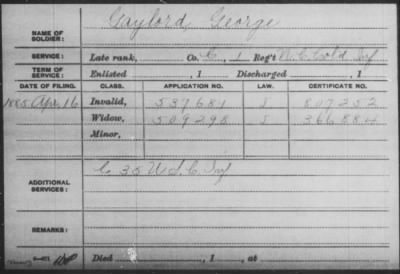 NAME OF SOLDIER: Gaylord, George
SERVICE: Late rank, Co. C, 1 Reg't N.C. Cold Inf
TERM OF SERVICE: Enlisted , 1 Discharged , 1
DATE OF FILING. CLASS. APPLICATION NO. LAW. CERTIFICATE NO.
1885 Apr. 16 Invalid, 537681 807252
Widow, 509298 366884
Minor,
ADDITIONAL SERVICES: C 35 U.S.C. Inf
REMARKS:
Died , 1 , at